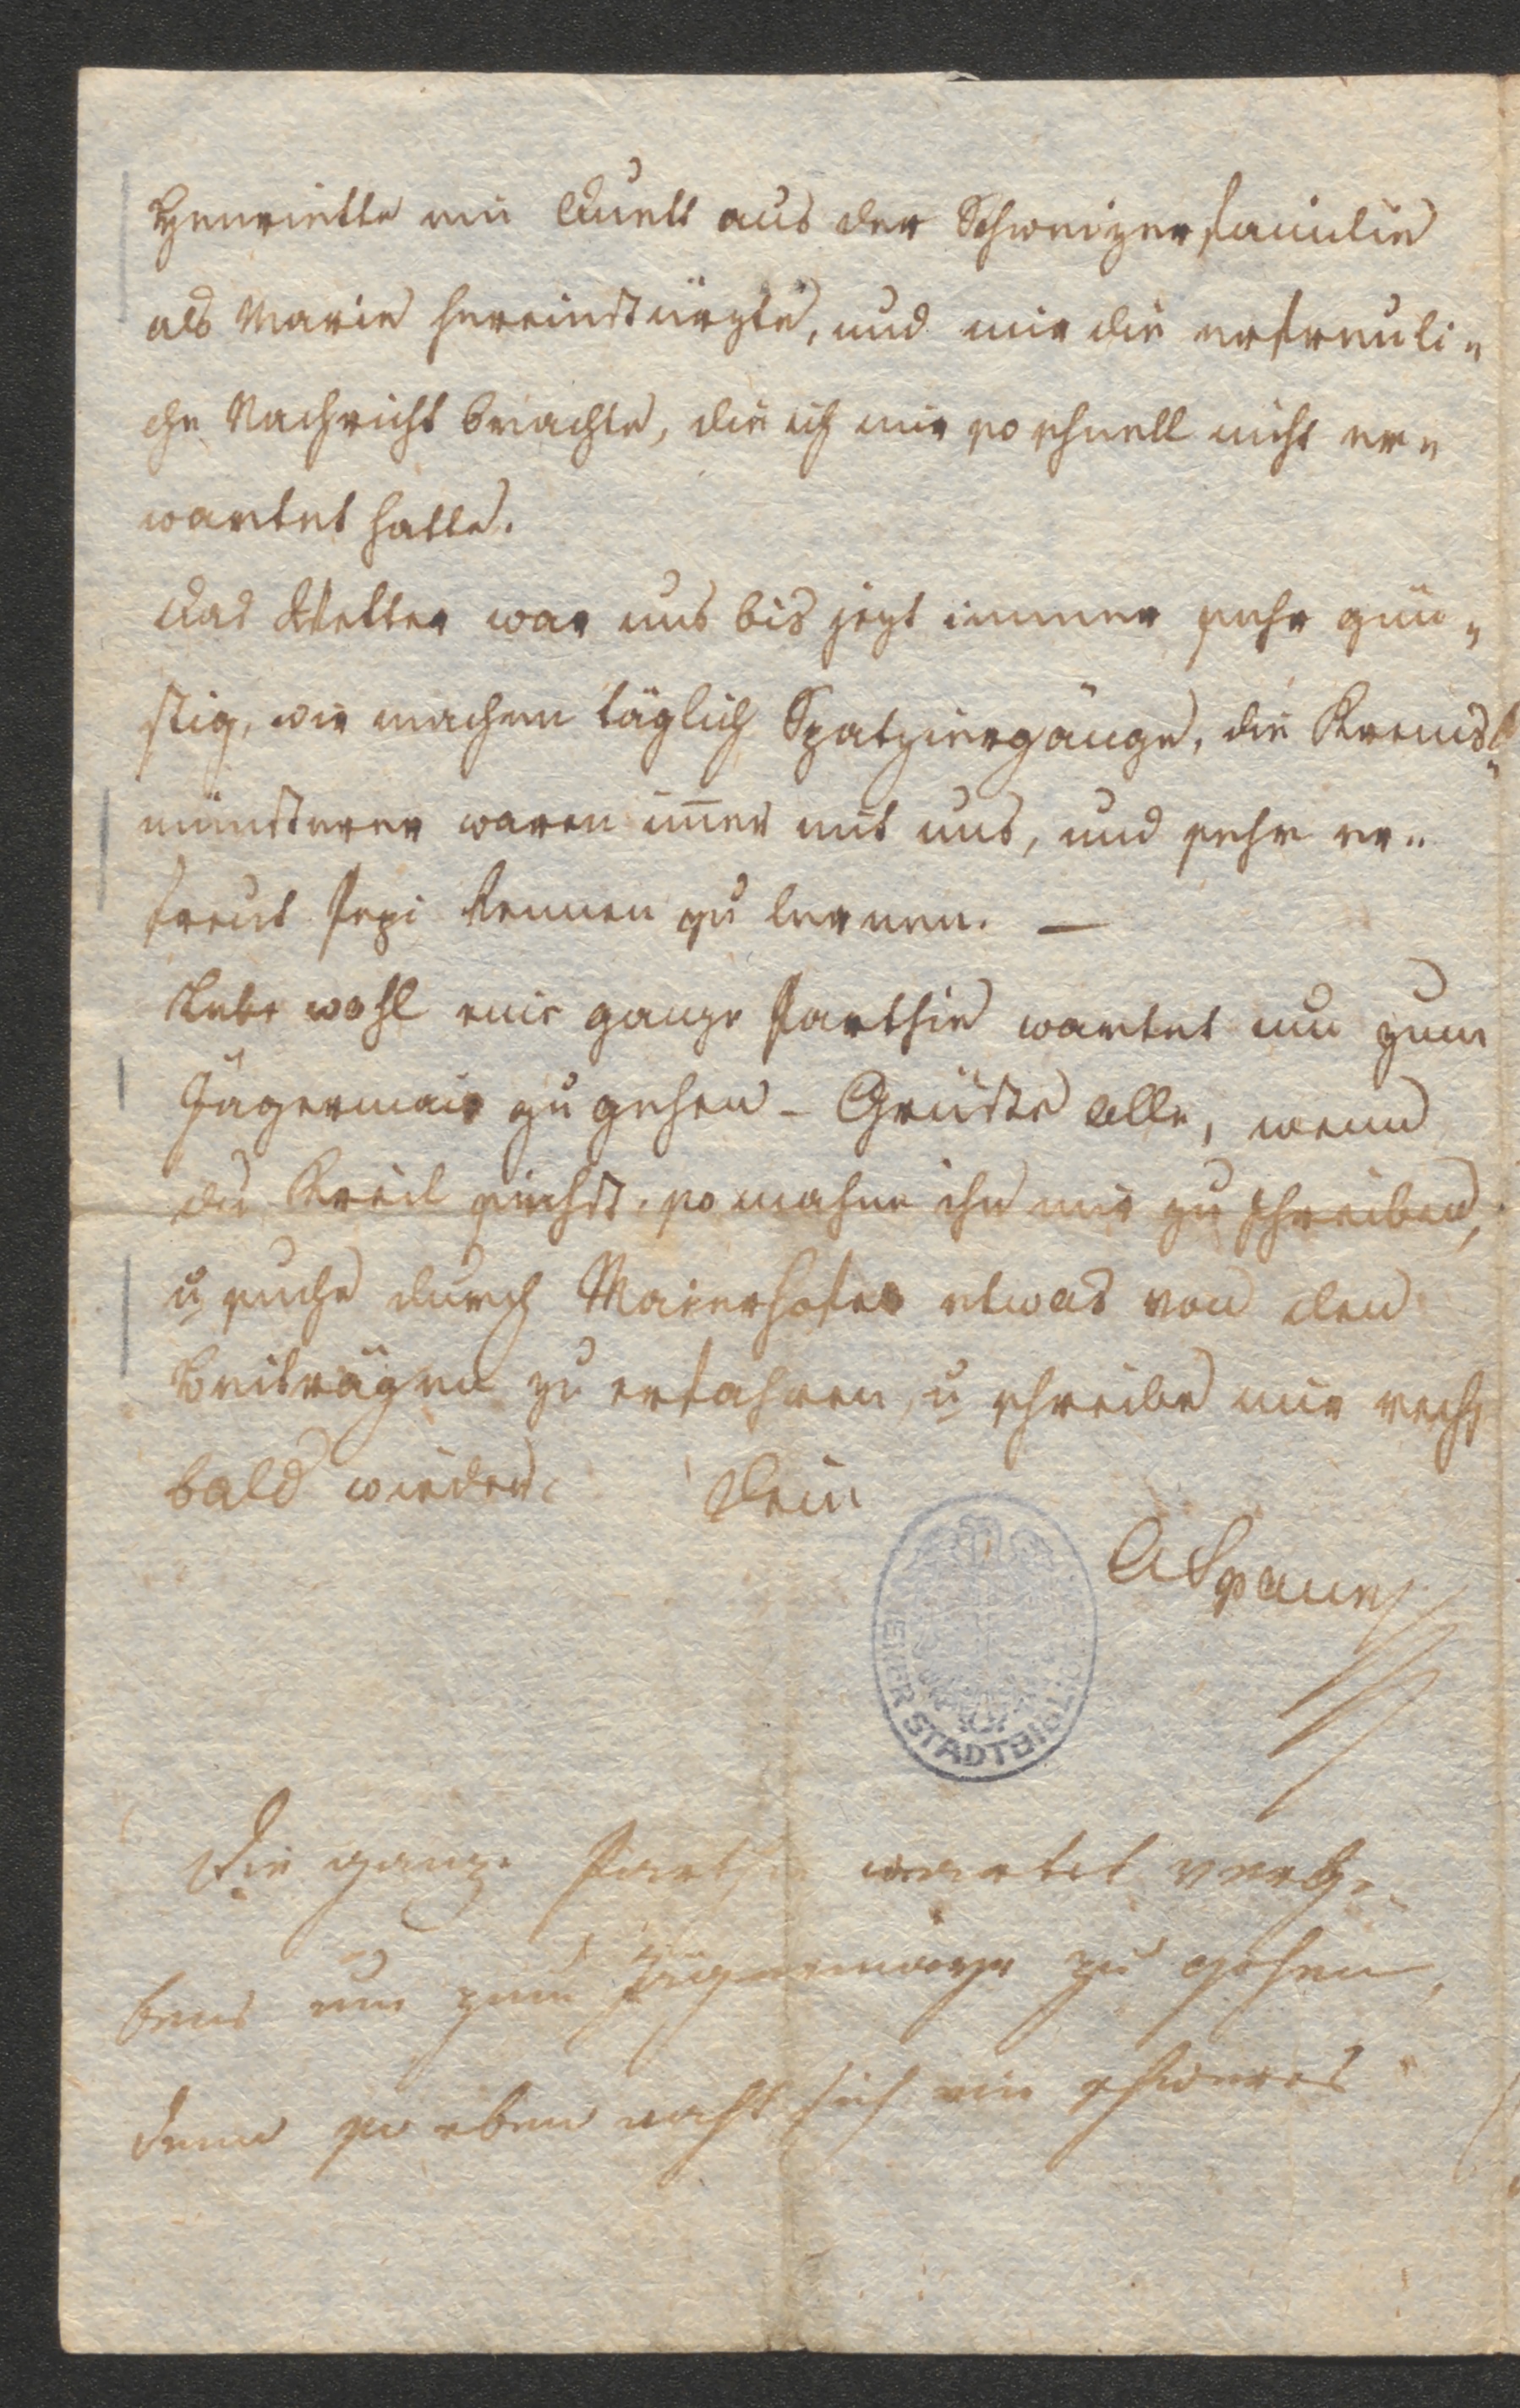 Henriette ein Duett aus der Schweizerfamilie
als Marie hereinstürzte, und mir die erfreuli„
che Nachricht brachte, die ich mir so schnell nicht er„
wartet hatte.
Das Wetter war uns bis jezt immer sehr gün„
stig, wir machen täglich Spatziergänge, die Krems„
münsterer waren im̅er mit uns, und sehr er„
freut Pepi kennen zu lernen. —
Lebe wohl eine ganze Parthie wartet um zum
Jägermair zu gehen – Grüße alle, wenn
du Kreil siehst, so mahne ihn mir zu schreiben,
u suche durch Maierhofer etwas von den
Beiträgen zu erfahren, u schreibe mir recht
bald wieder. Dein
ASpaun
WIENER STADTBIBLIO
Die ganze Parthie wartet verge„
bens um zum Jägermayr zu gehen,
denn so eben naht sich ein schweres